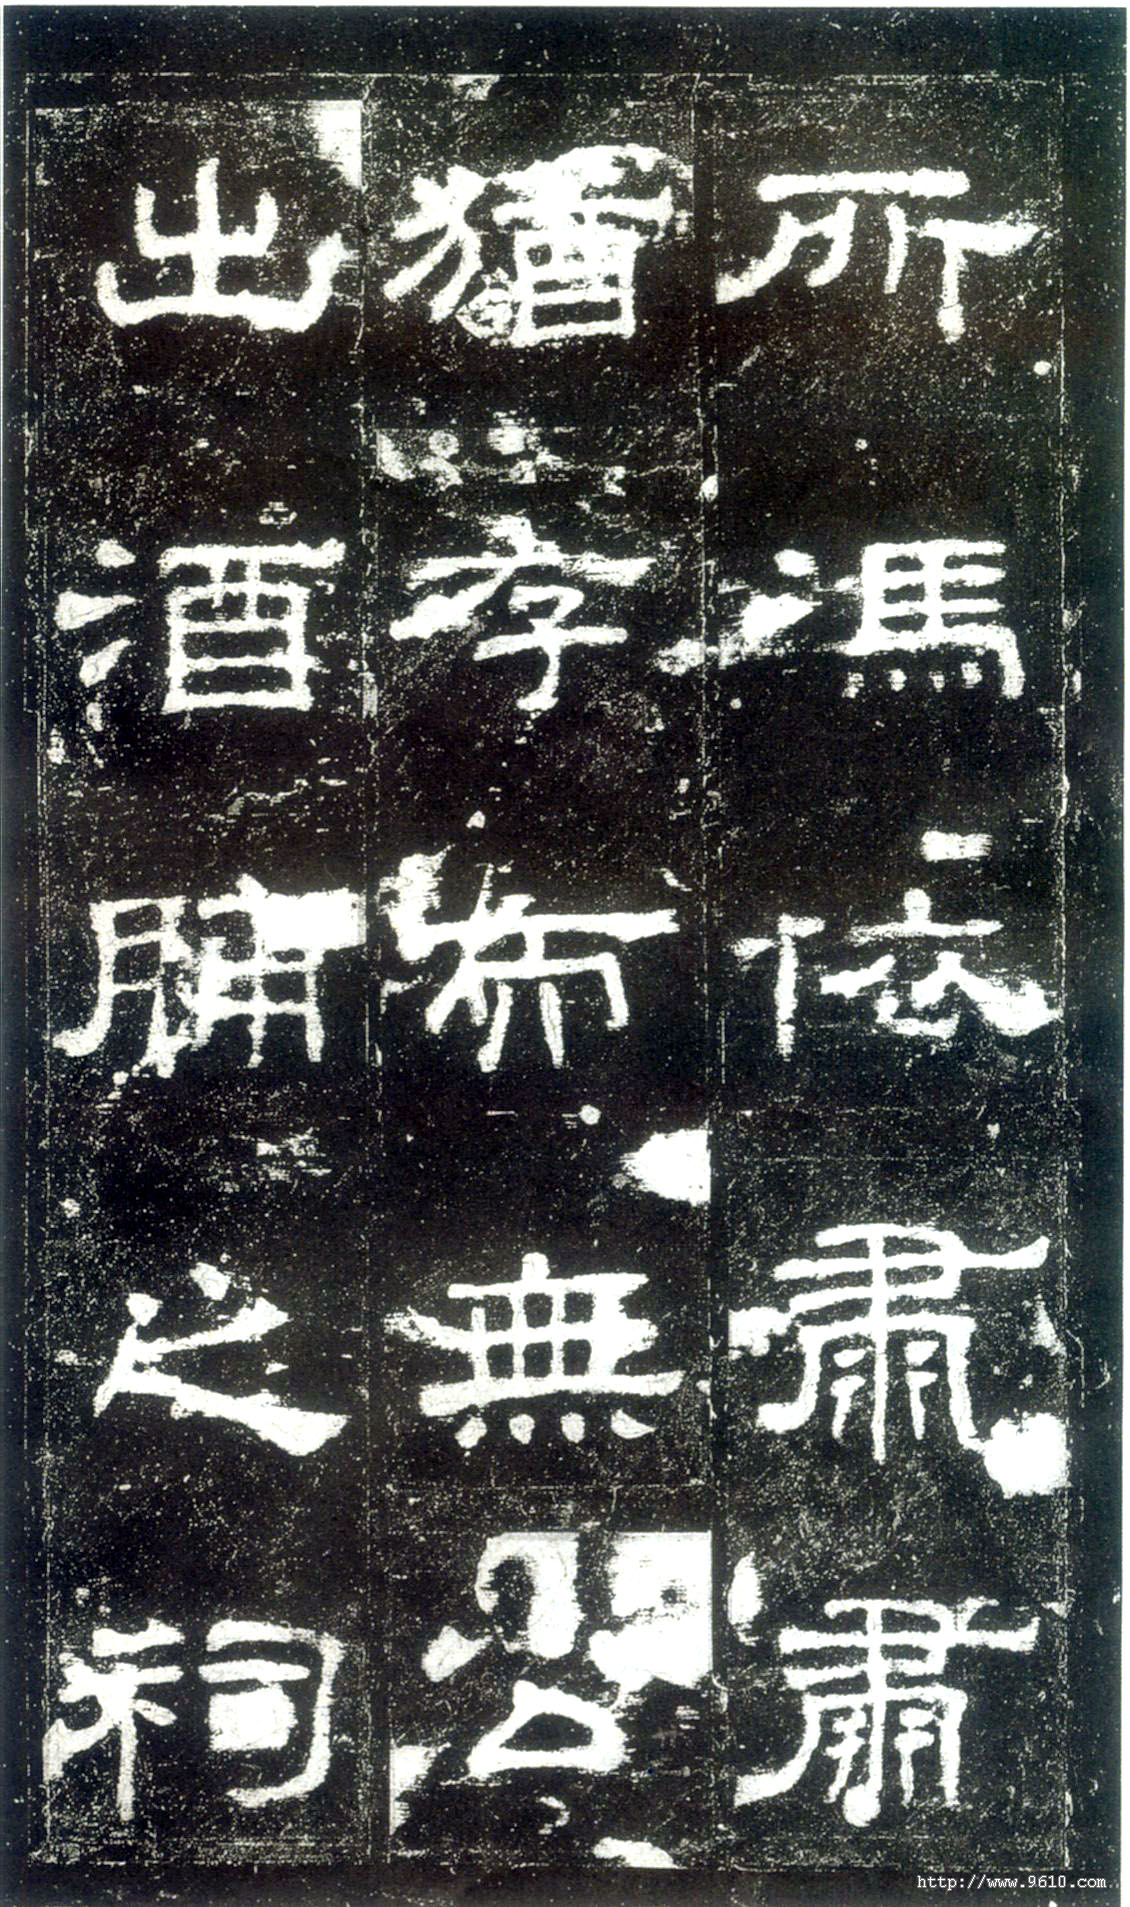 所馮依肅肅
猶存而無公
出酒脯之祠
http://www.9610.com